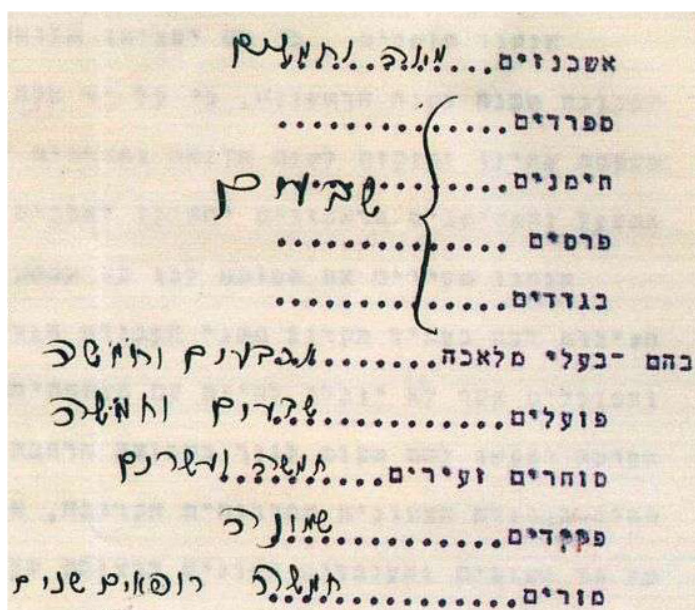 אשכנזים......מאה וחמשים
ספרדים................
תימנים................
שבעים
פרסים................
בגדדים................
בהם -בעלי מלאכה.......ארבעים וחמשה
פועלים...............שבעים וחמשה
סוחרים זעירים..........חמשה ועשרים
פקידים...............שמונה
מורים...............חמשה רופאים שנים